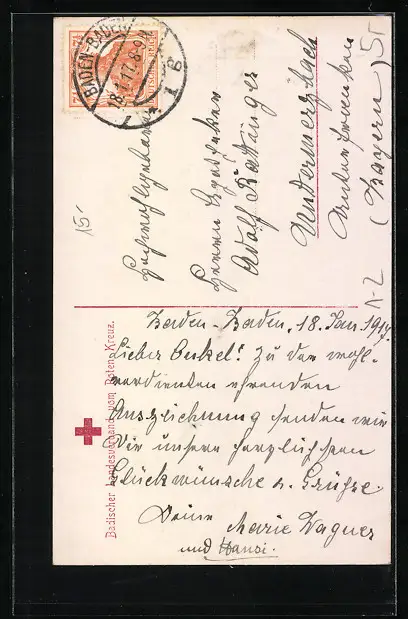 BADEN-BADEN
18.1.17. 8-9 V
1 B
Hochwohlgeboren
Herrn Apotheker
Adolf
Untermerzbach
Unterfranken
(Bayern)
15.-
Badischer Landesverband vom Roten Kreuz.
Baden-Baden, 18. Jan. 1917.
Lieber Onkel! Zu der wohl-
verdienten ehrenden
Auszeichnung senden wir
Dir unsere herzlichsten
Glückwünsche u. Grüsse.
Deine Marie Wagner
und Hansi.